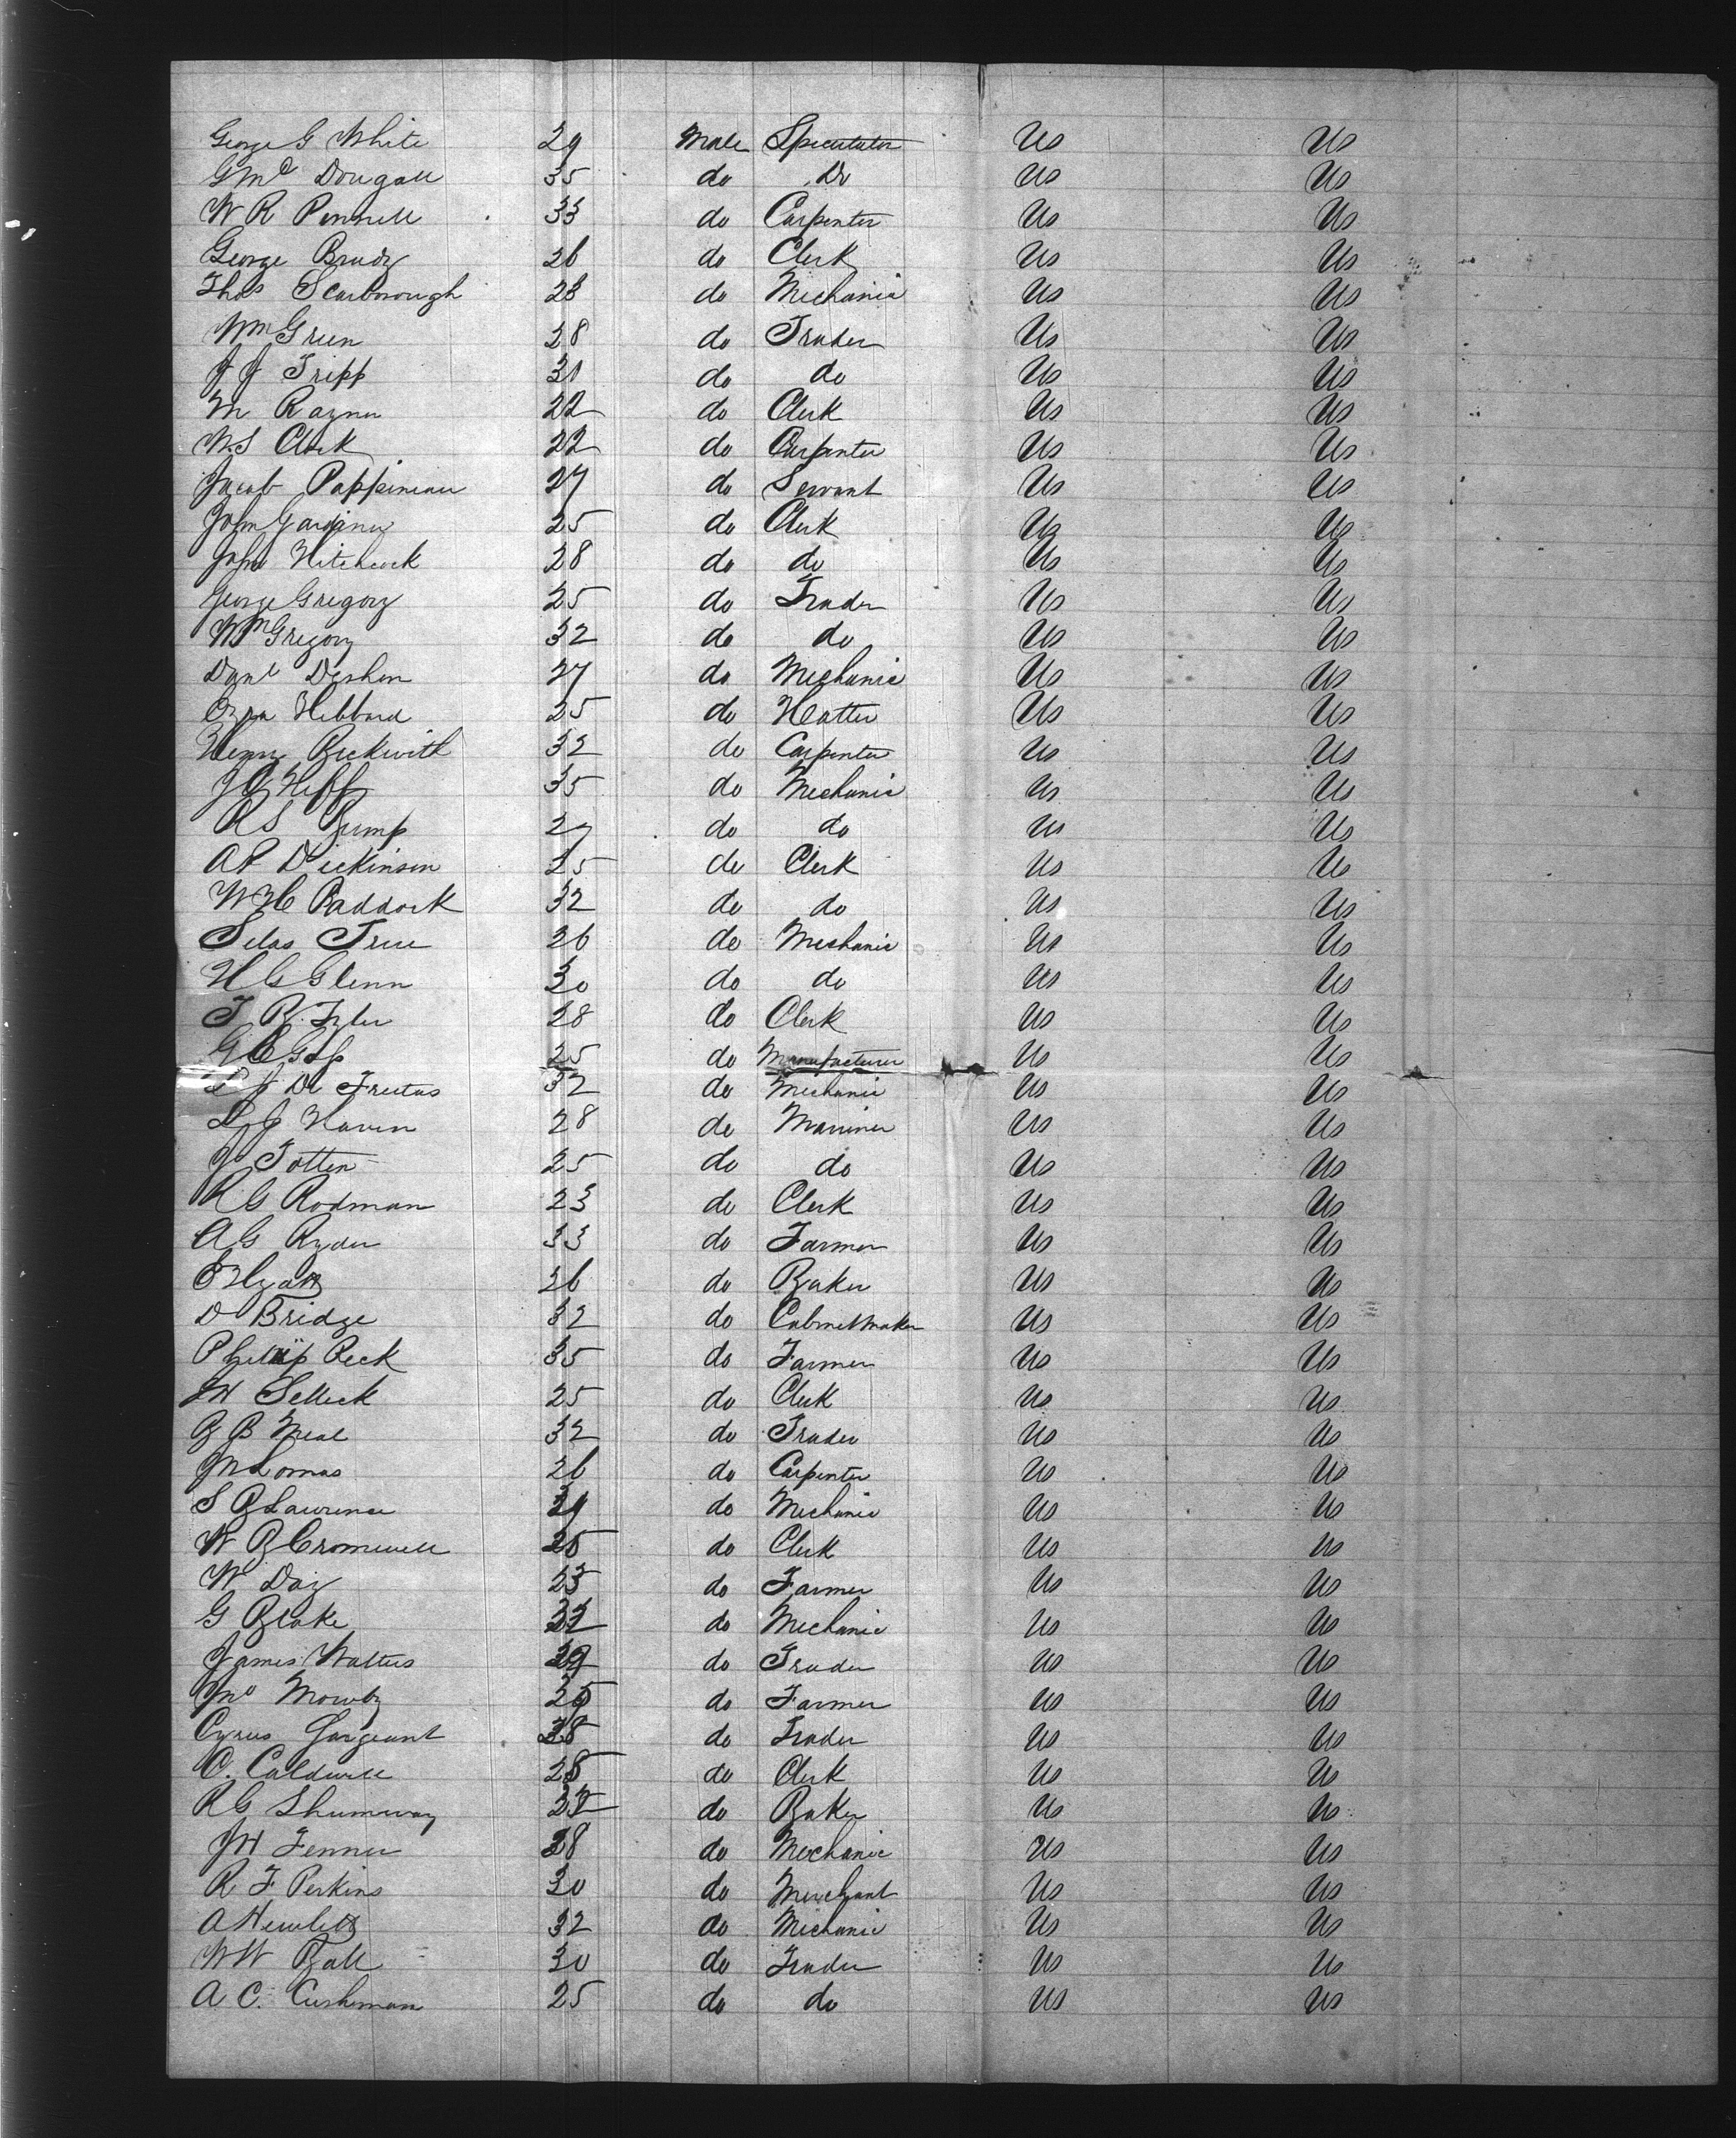 George G White 29 Male Speculator Us Us
G Mc Dougall 35 do Do Us Us
W R Pennell 33 do Carpenter Us Us
George Brady 26 do Clerk Us Us
Thos Scarborough 23 do Mechanic Us Us
Wm Green 28 do Trader Us Us
J J Tripp 31 do do Us Us
M Rayner 22 do Clerk Us Us
W.S Clark 22 do Carpenter Us Us
Jacob Pappineau 27 do Servant Us Us
John Gardiner 25 do Clerk Us Us
John Hitchcock 28 do do Us Us
George Gregory 25 do Trader Us Us
Wm Gregory 32 do do Us Us
Danl Deshon 27 do Mechanic Us Us
Ezra Hibbard 25 do Hatter Us Us
Henry Beckwith 32 do Carpenter Us Us
35 do Mechanic Us Us
R S Bump 27 do do Us Us
A P Dickinson 25 do Clerk Us Us
W H Paddock 32 do do Us Us
Silas True 26 do Mechanic Us Us
H G Glenn 30 do do Us Us
T B Tyler 28 do Clerk Us Us
25 do Manufacturer Us Us
J De Freitas 32 do Mechanic Us Us
L J Haven 28 do Marriner Us Us
J Totten 25 do do Us Us
R G Rodman 23 do Clerk Us Us
A G Ryder 33 do Farmer Us Us
E Hyatt 26 do Baker Us Us
D Bridge 32 do Cabinetmaker Us Us
Philip Peck 35 do Farmer Us Us
W Selleck 25 do Clerk Us Us
B B Neal 32 do Trader Us Us
Lomas 26 do Carpenter Us Us
S B Lawrence do Mechanic Us Us
W B Cromwell do Clerk Us Us
W Day do Farmer Us Us
G Blake do Mechanic Us Us
James Walters do Trader Us Us
Jno Mowby do Farmer Us Us
Cyrus Gargeant do Trader Us Us
C. Caldwell do Clerk Us Us
R G Shumway do Baker Us Us
J H Fenner 38 do Mechanic Us Us
R F Perkins 30 do Merchant Us Us
A Hewlett 32 do Mechanic Us Us
W W Ball 30 do Trader Us Us
A C. Cushman 25 do do Us Us